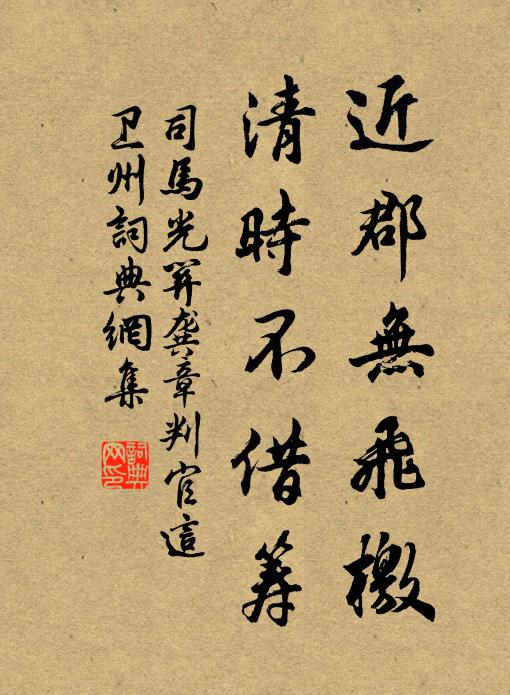 近郡無飛檄
清時不借筹
司馬光龔章判官這
卫州詞典網集
詞典网印